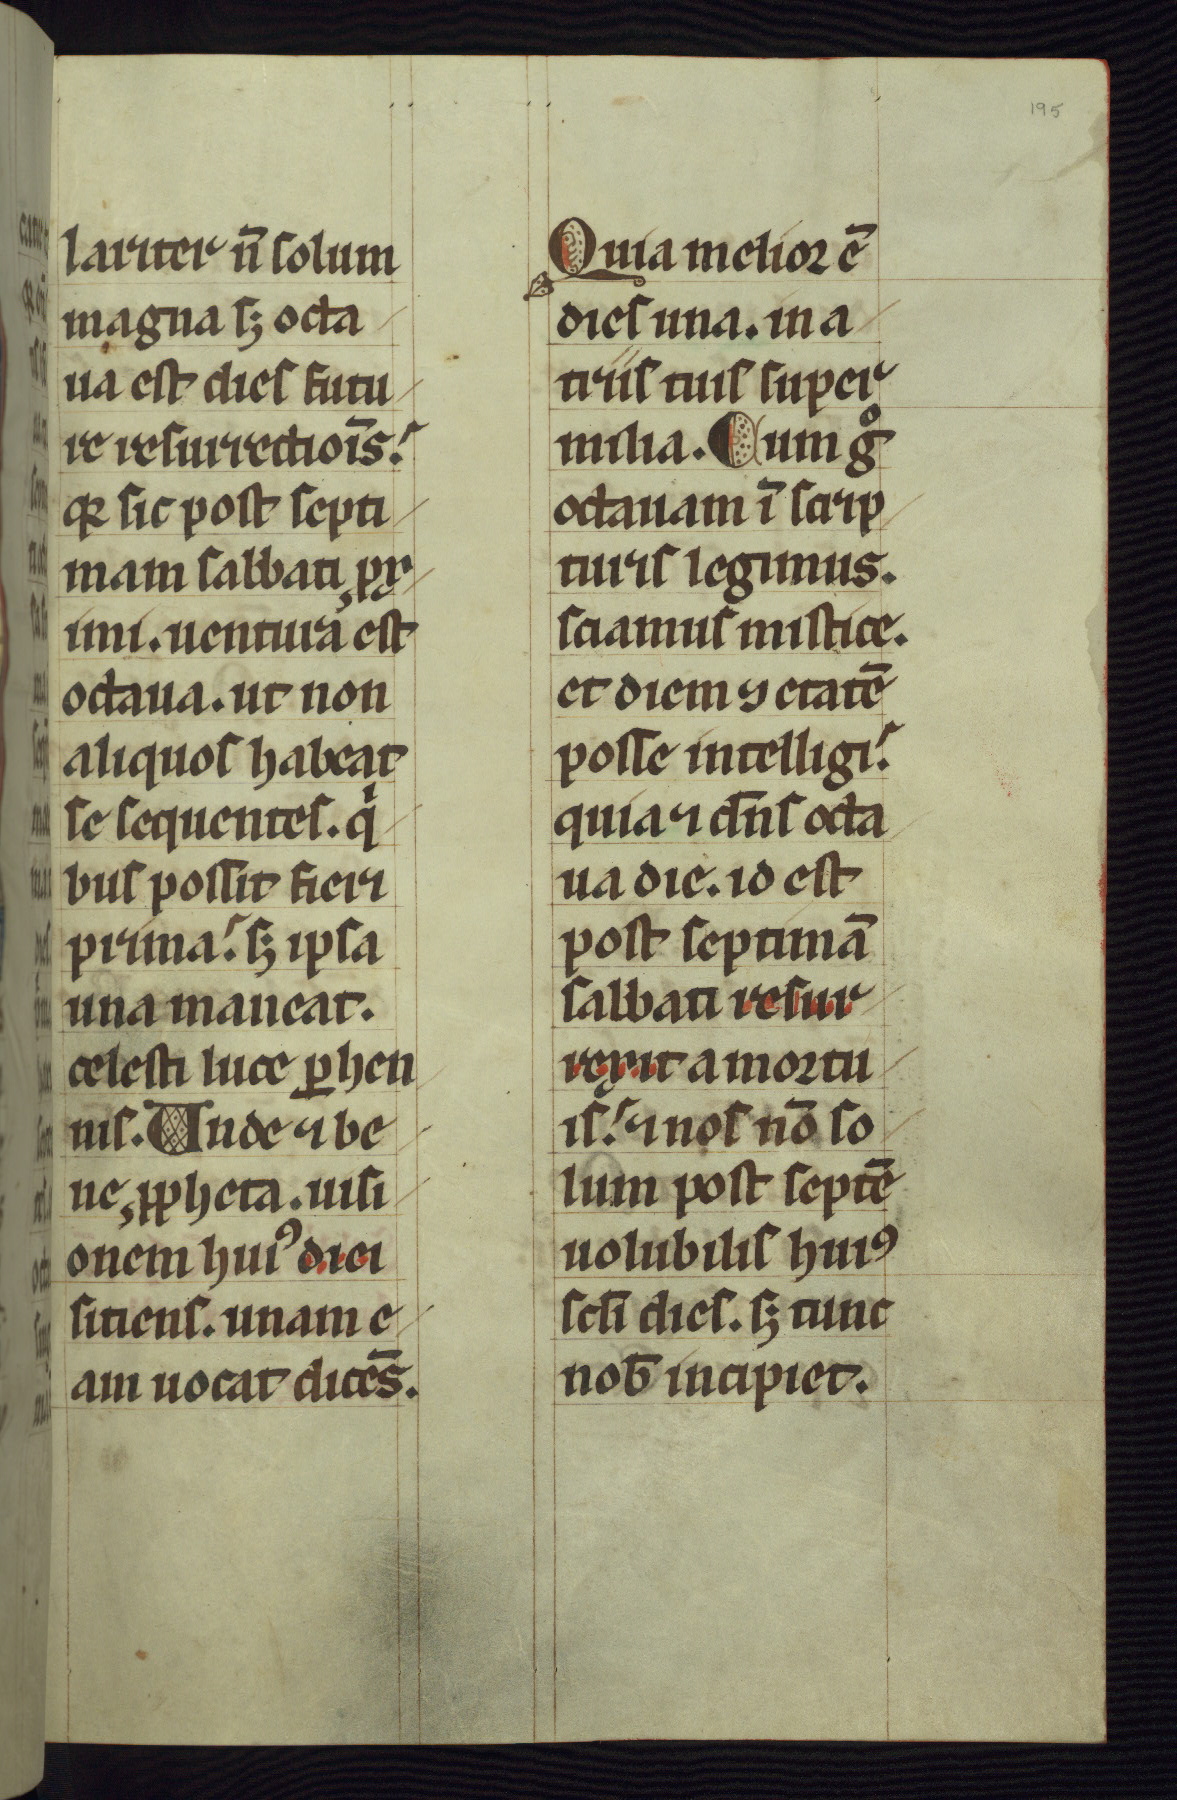 195
lariter n̄ solum
magna sꝫ octa
ua est dies futu
re resurrectiois̄.
qꝛ sic post septi
mam sabbati pͥxͥ
imi. uentura est
octaua. ut non
aliquos habeat
se sequentes. qͥ
bus possit fieri
prima. sꝫ ipsa
una maneat.
celesti luce ꝑhen
nis. Unde ⁊ be
ne ꝓpheta. uisi
onem huiꝰ diei
sitiens. unam e
am uocat dicēs.
Quia melior ē
dies una. in a
triis tuis super
milia. Cum gͦ
octauam ī scrip
turis legimus.
sciamus mistice.
et diem ⁊ etatē
posse intelligi.
quia ⁊ dn̄s octa
ua die. id est
post septimā
sabbati resur
rexit a mortu
is. ⁊ nos nō so
lum post septē
uolubilis huiꝰ
scl̄i dies. sꝫ tunc
nob̄ incipiet.